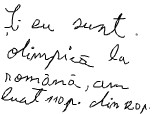 Și eu sunt
olimpică la
română, am
luat 110p. din 120p.